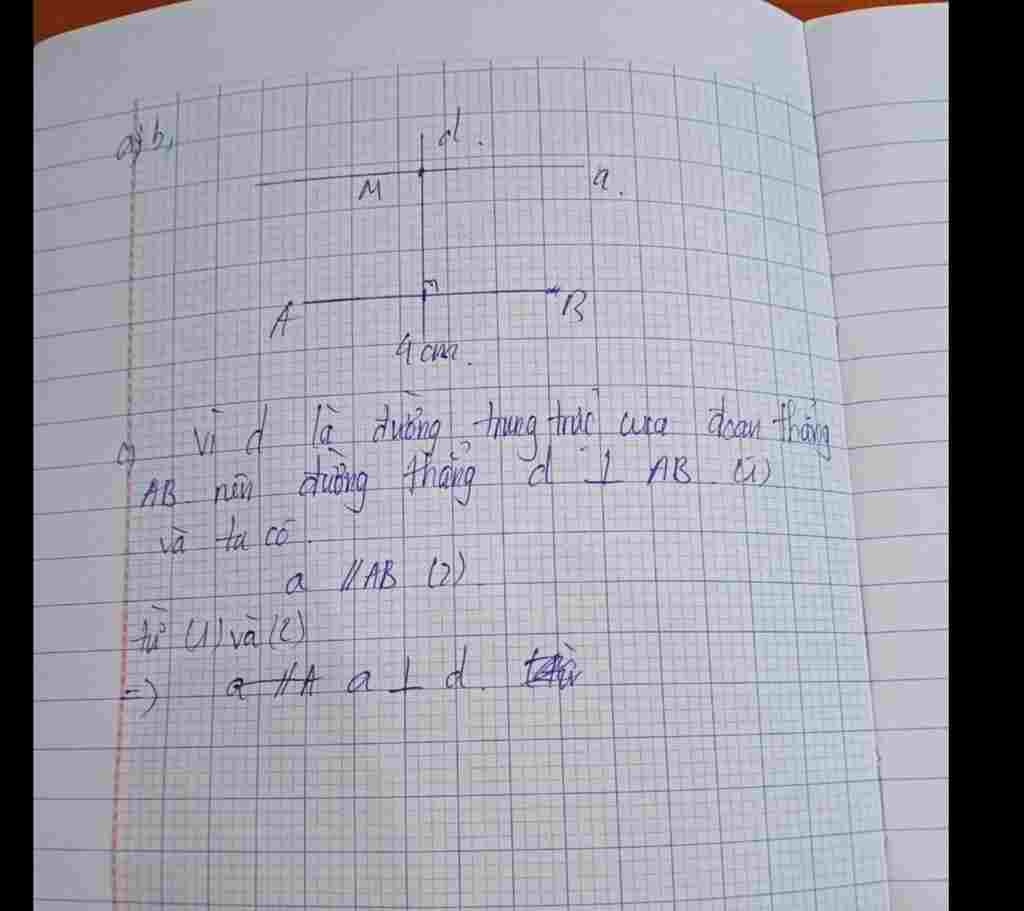 a, b,
d.
M
a.
A
B
4 cm.
c, Vì d là đường trung trực của đoạn thẳng
AB nên đường thẳng d ⊥ AB (1)
và ta có.
a // AB (2)
từ (1) và (2)
=) a // A a ⊥ d.